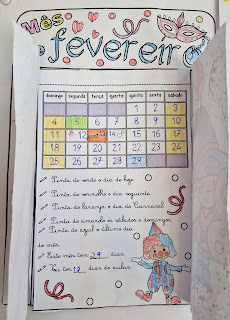 Mês
fevereiro
domingo segunda terça quarta quinta sexta sábado
1 2 3
4 5 6 7 8 9 10
11 12 14 15 16 17
18 19 20 21 22 23 24
25 26 27 28 29
Pinta de verde o dia de hoje.
Pinta de vermelho o dia seguinte.
Pinta de laranja o dia do Carnaval.
Pinta de amarelo os sábados e domingos.
Pinta de azul o último dia
do mês.
Este mês tem 29 dias.
Vou ter 18 dias de aulas.